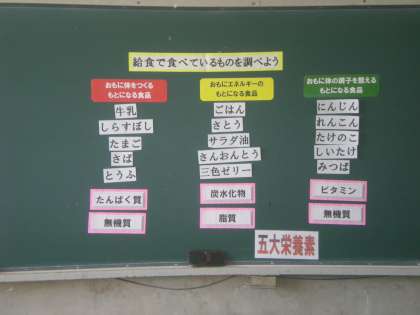 給食で食べているものを調べよう
おもに体をつくる
もとになる食品
牛乳
しらすぼし
たまご
さば
とうふ
たんぱく質
無機質
おもにエネルギーの
もとになる食品
ごはん
さとう
サラダ油
さんおんとう
三色ゼリー
炭水化物
脂質
おもに体の調子を整える
もとになる食品
にんじん
れんこん
たけのこ
しいたけ
みつば
ビタミン
無機質
五大栄養素